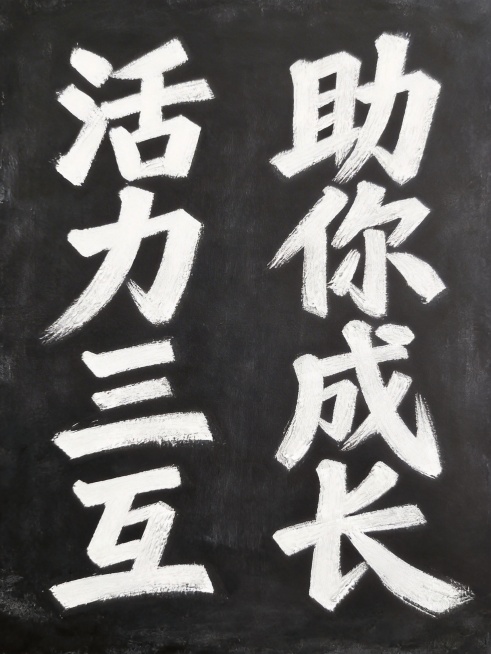 活力三互
助你成长